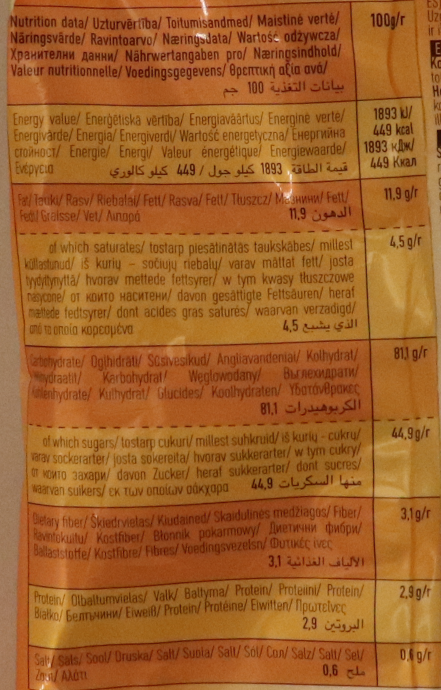 Nutrition data/ Uzturvērtība/ Toitumisandmed/ Maistinė vertė/
Näringsvärde/ Ravintoarvo/ Næringsdata/ Wartość odżywcza/
Хранителни данни/ Nährwertangaben pro/ Næringsindhold/
Valeur nutritionnelle/ Voedingsgegevens/ Θρεπτική αξία ανά/
بيانات التغذية 100 جم
100g/г
Energy value/ Enerģētiska vērtība/ Energiaväärtus/ Energinė vertė/
Energivärde/ Energia/ Energiverdi/ Wartość energetyczna/ Енергийна
стойност/ Energie/ Energi/ Valeur énergétique/ Energiewaarde/
Ενέργεια
قيمة الطاقة 1893 كيلو جول / 449 كيلو كالوري
1893 kJ/
449 kcal
1893 кДж/
449 Ккал
Fat/ Tauki/ Rasv/ Riebalai/ Fett/ Rasva/ Fett/ Tłuszcz/ Мазнини/ Fett/
Fedt/ Graisse/ Vet/ Λιπαρά
الدهون 11,9
11,9 g/г
of which saturates/ tostarp piesātinātās taukskābes/ millest
küllastunud/ iš kurių – sočiųjų riebalų/ varav mättat fett/ josta
tyydyttynyttä/ hvorav mettede fettsyrer/ w tym kwasy tłuszczowe
nasycone/ от които наситени/ davon gesättigte Fettsäuren/ heraf
mættede fedtsyrer/ dont acides gras saturés/ waarvan verzadigd/
από τα οποία κορεσμένα
الذي يشبع 4,5
4,5 g/г
Carbohydrate/ Ogļhidrāti/ Süsivesikud/ Angliavandeniai/ Kolhydrat/
Hiilihydraatit/ Karbohydrat/ Węglowodany/ Въглехидрати/
Kohlenhydrate/ Kulhydrat/ Glucides/ Koolhydraten/ Υδατάνθρακες
الكربوهيدرات 81,1
81,1 g/г
of which sugars/ tostarp cukuri/ millest suhkruid/ iš kurių - cukrų/
varav sockerarter/ josta sokereita/ hvorav sukkerarter/ w tym cukry/
от които захари/ davon Zucker/ heraf sukkerarter/ dont sucres/
waarvan suikers/ εκ των οποίων σάκχαρα
منها السكريات 44,9
44,9 g/г
Dietary fiber/ Šķiedrvielas/ Kiudained/ Skaidulinės medžiagos/ Fiber/
Ravintokuitu/ Kostfiber/ Błonnik pokarmowy/ Диетични фибри/
Ballaststoffe/ Kostfibre/ Fibres/ Voedingsvezelsn/ Φυτικές ίνες
الألياف الغذائية 3,1
3,1 g/г
Protein/ Olbaltumvielas/ Valk/ Baltyma/ Protein/ Proteiini/ Protein/
Białko/ Белтъчини/ Eiweiß/ Protein/ Protéine/ Eiwitten/ Πρωτεΐνες
البروتين 2,9
2,9 g/г
Salt/ Sāls/ Sool/ Druska/ Salt/ Suola/ Salt/ Sól/ Сол/ Salz/ Salt/ Sel/
Zout/ Αλάτι
ملح 0,6
0,6 g/г